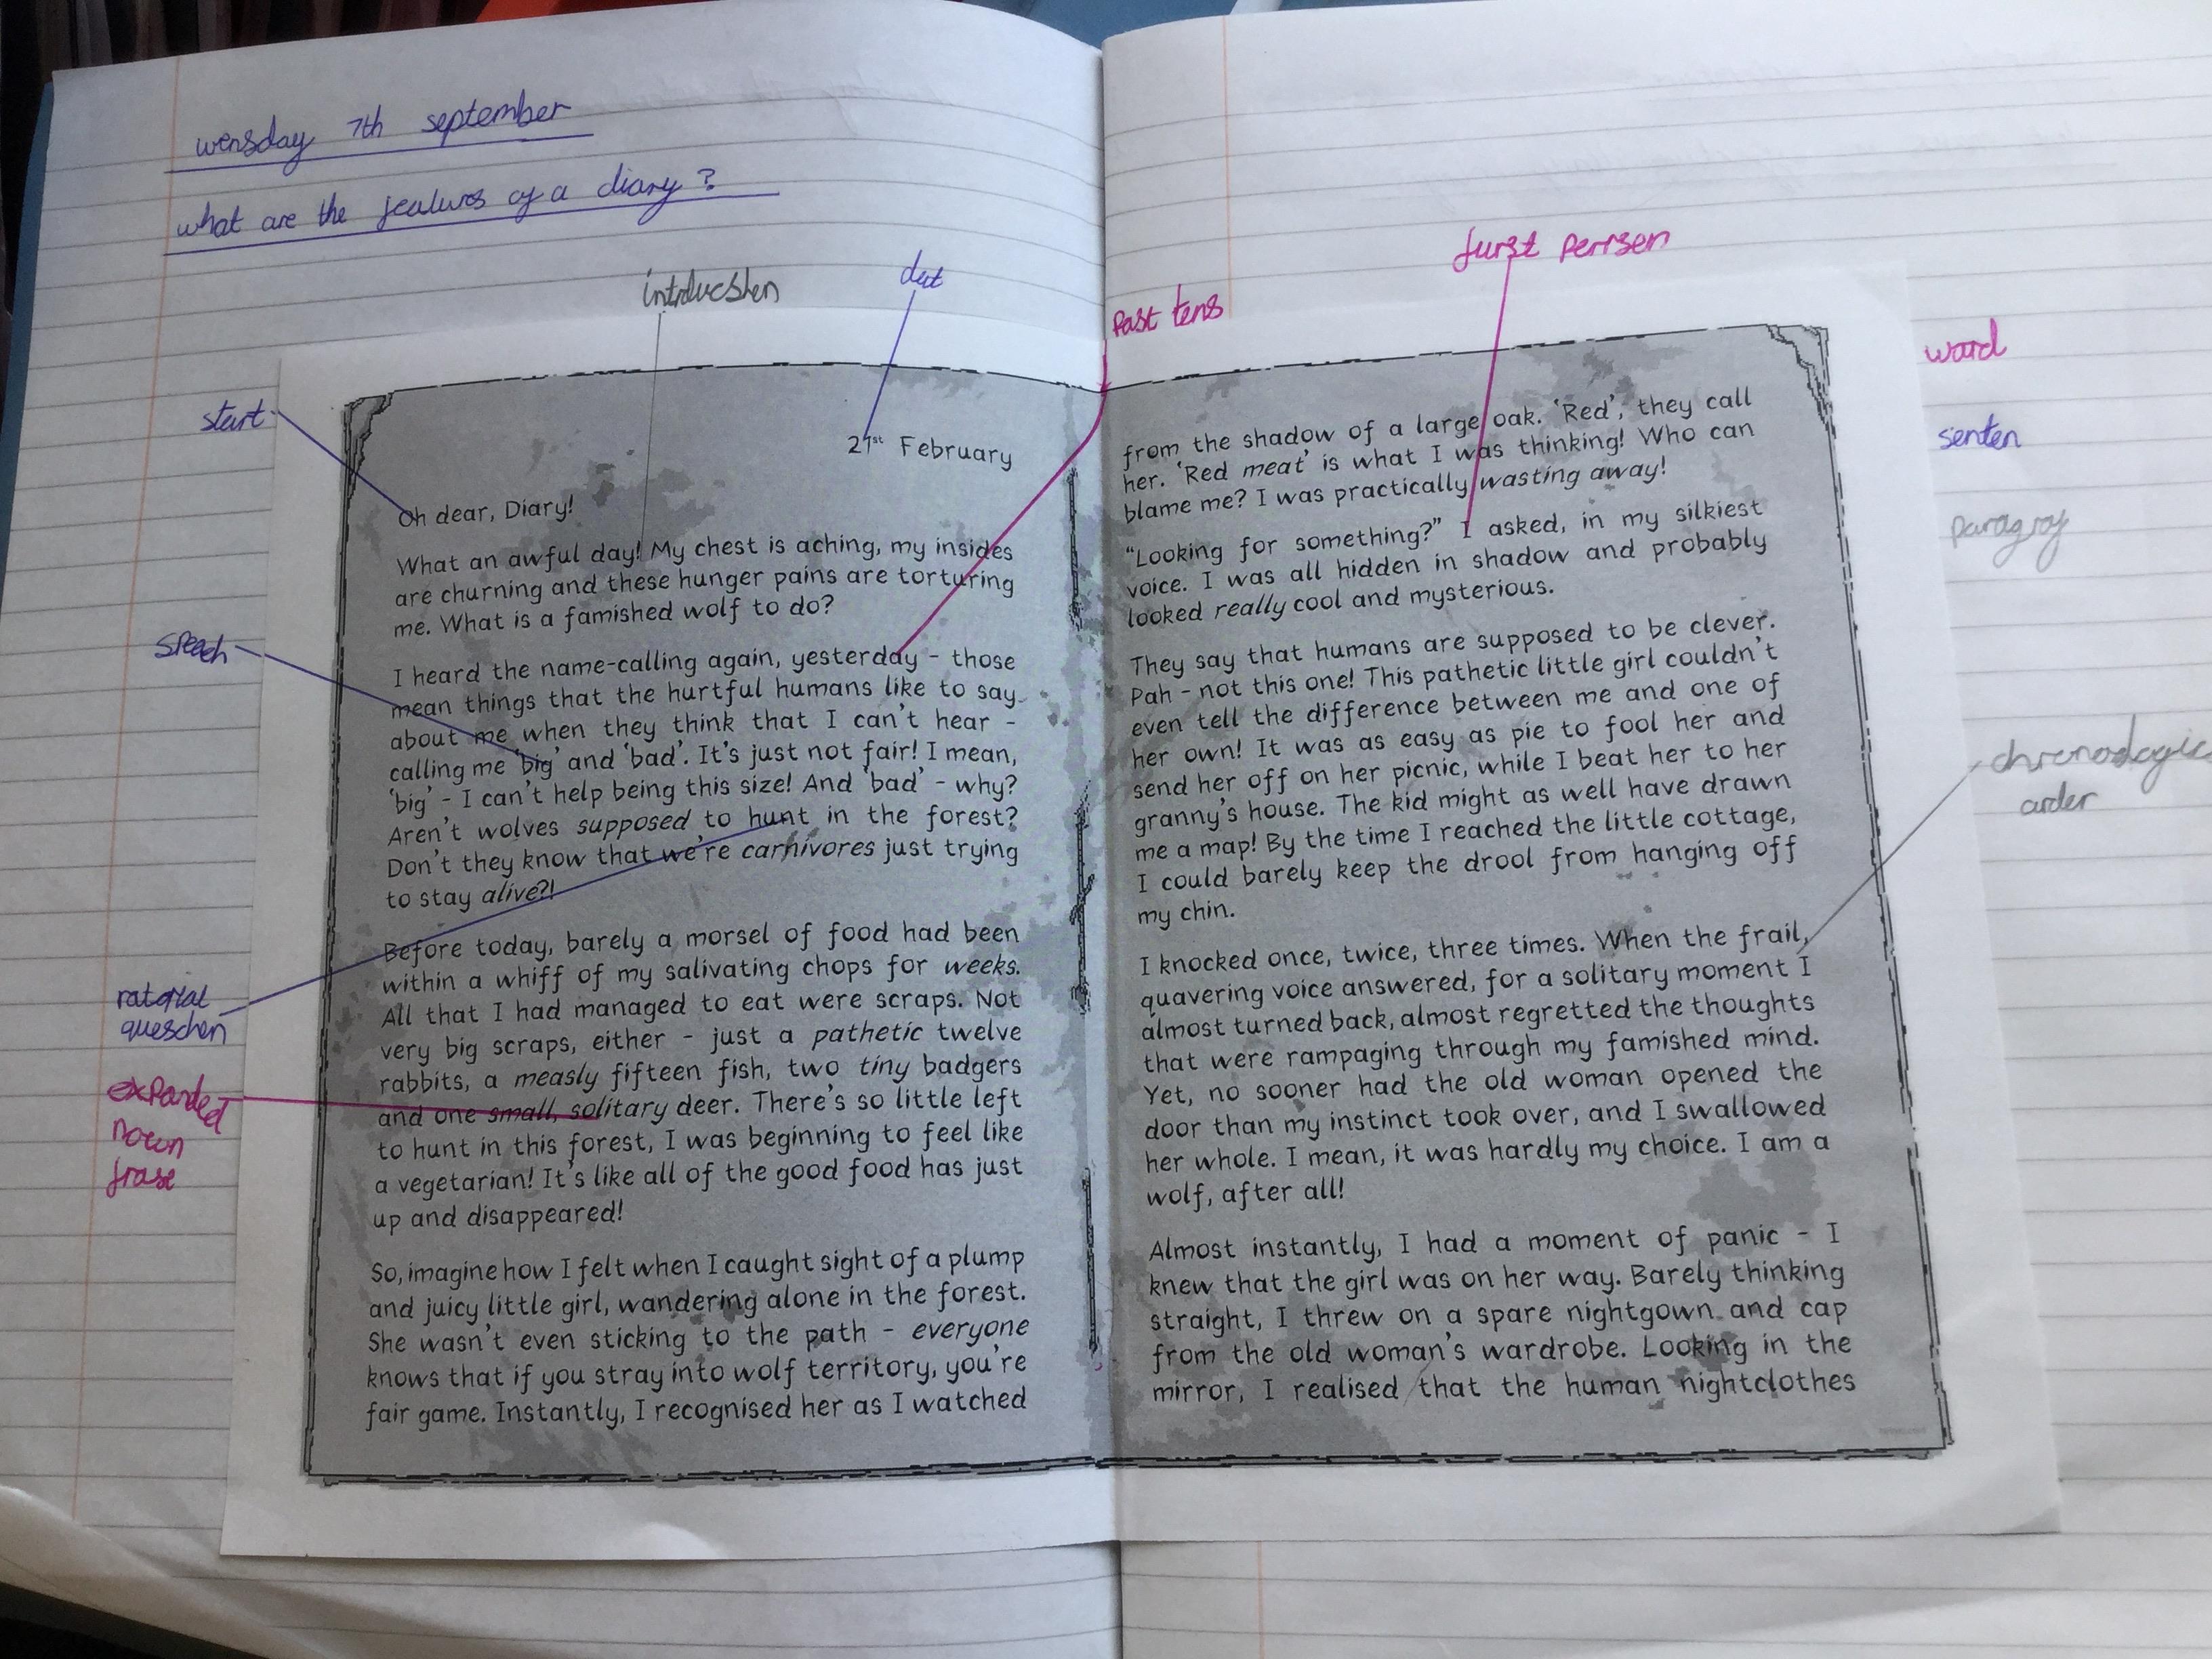 wensday 7th september
what are the features of a diary?
introducshen
dat
start
speech
ratorial
queschen
expanded
nown
frase
21st February
Oh dear, Diary!
What an awful day! My chest is aching, my insides
are churning and these hunger pains are torturing
me. What is a famished wolf to do?
I heard the name-calling again, yesterday - those
mean things that the hurtful humans like to say
about me when they think that I can't hear -
calling me 'big' and 'bad'. It's just not fair! I mean,
'big' - I can't help being this size! And 'bad' - why?
Aren't wolves supposed to hunt in the forest?
Don't they know that we're carnivores just trying
to stay alive?!
Before today, barely a morsel of food had been
within a whiff of my salivating chops for weeks.
All that I had managed to eat were scraps. Not
very big scraps, either - just a pathetic twelve
rabbits, a measly fifteen fish, two tiny badgers
and one small, solitary deer. There's so little left
to hunt in this forest, I was beginning to feel like
a vegetarian! It's like all of the good food has just
up and disappeared!
So, imagine how I felt when I caught sight of a plump
and juicy little girl, wandering alone in the forest.
She wasn't even sticking to the path - everyone
knows that if you stray into wolf territory, you're
fair game. Instantly, I recognised her as I watched
Past tens
furst perrsen
from the shadow of a large oak. 'Red', they call
her. 'Red meat' is what I was thinking! Who can
blame me? I was practically wasting away!
"Looking for something?" I asked, in my silkiest
voice. I was all hidden in shadow and probably
looked really cool and mysterious.
They say that humans are supposed to be clever.
Pah - not this one! This pathetic little girl couldn't
even tell the difference between me and one of
her own! It was as easy as pie to fool her and
send her off on her picnic, while I beat her to her
granny's house. The kid might as well have drawn
me a map! By the time I reached the little cottage,
I could barely keep the drool from hanging off
my chin.
I knocked once, twice, three times. When the frail,
quavering voice answered, for a solitary moment I
almost turned back, almost regretted the thoughts
that were rampaging through my famished mind.
Yet, no sooner had the old woman opened the
door than my instinct took over, and I swallowed
her whole. I mean, it was hardly my choice. I am a
wolf, after all!
Almost instantly, I had a moment of panic - I
knew that the girl was on her way. Barely thinking
straight, I threw on a spare nightgown and cap
from the old woman's wardrobe. Looking in the
mirror, I realised that the human nightclothes
ward
senten
paragraf
order